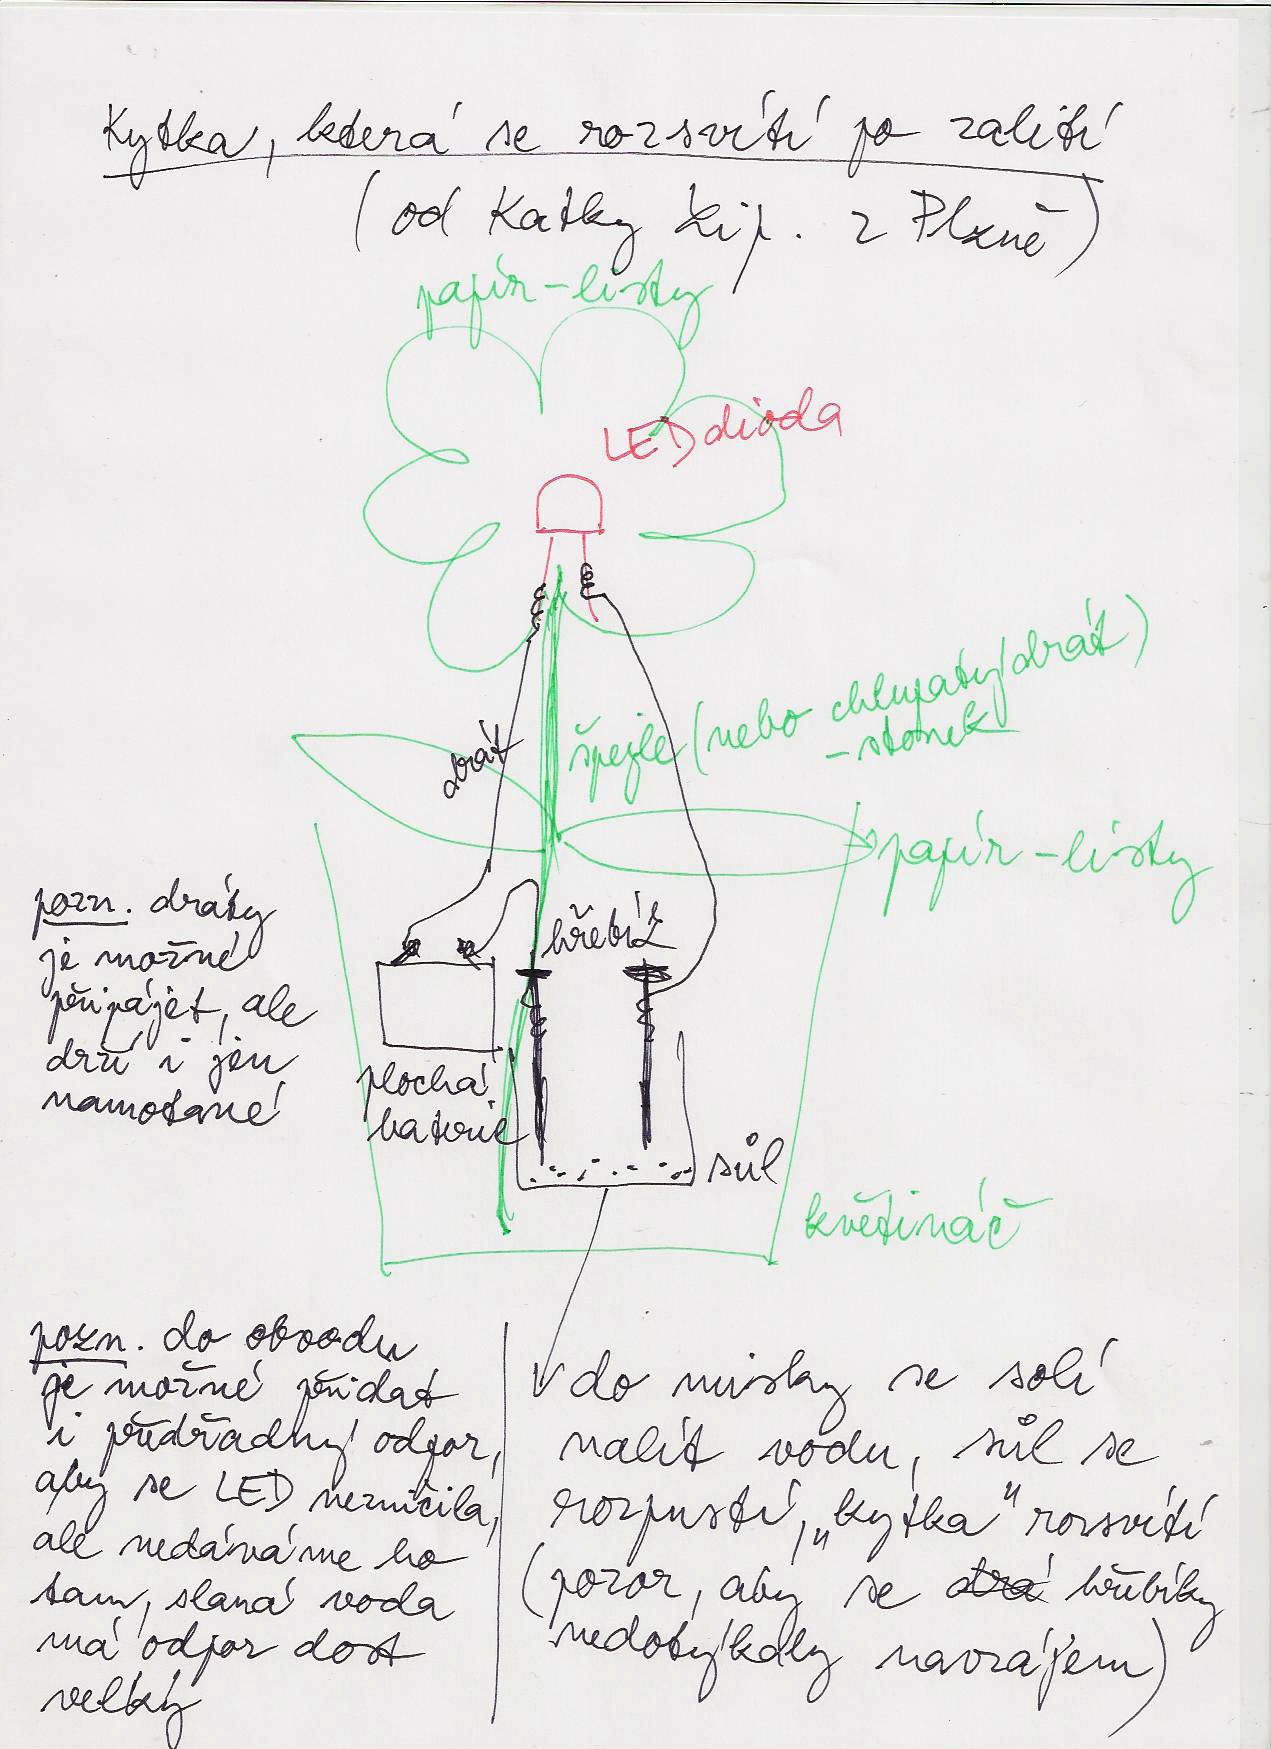 Kytka, která se rozsvítí po zalití
(od Katky Lip. z Plzně)
papír - listy
LED dioda
drát
špejle (nebo chlupatý drát)
- stonek
papír - listy
pozn. dráty
je možné
připájet, ale
drží i jen
namotané
hřebík
plochá
baterie
sůl
květináč
pozn. do obvodu
je možné přidat
i předřadný odpor,
aby se LED nezničila,
ale nedáváme ho
tam, slaná voda
má odpor dost
velký
do misky se solí
nalít vodu, sůl se
rozpustí, „kytka" rozsvítí
(pozor, aby se hřebíky
nedotýkaly navzájem)